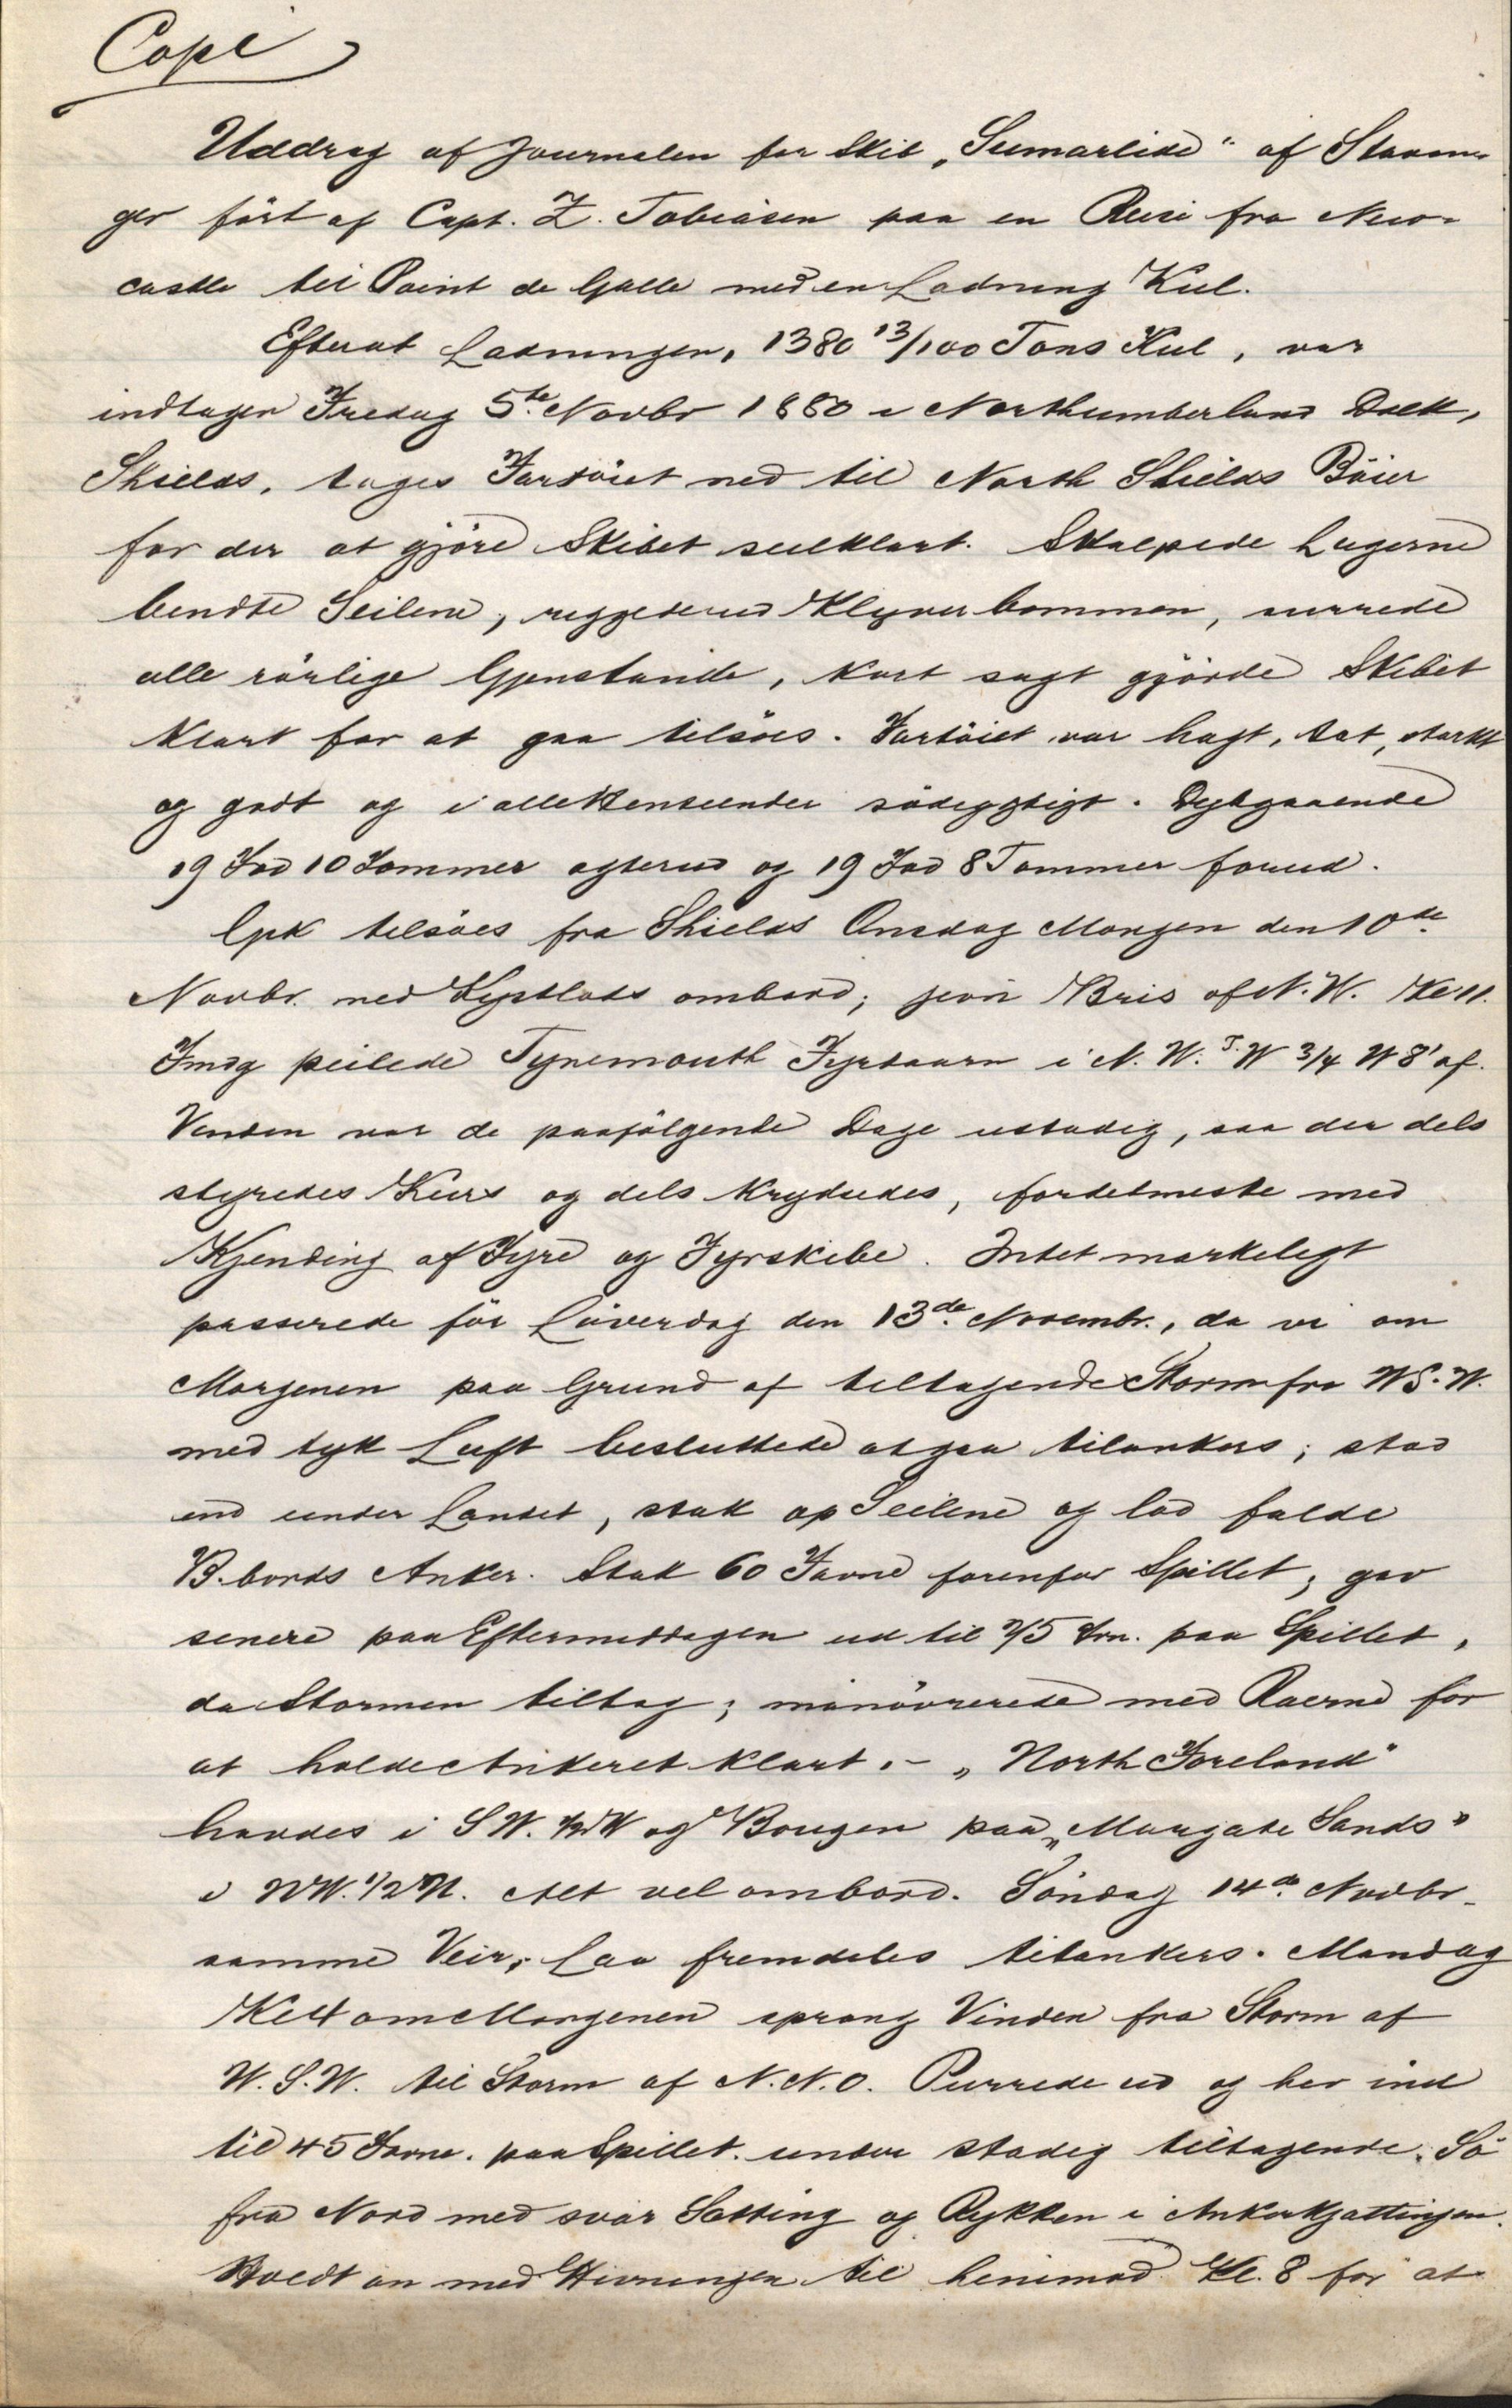 Copi
Uddrag af Journalen for Skib „Sumarlide" af Stavan-
ger ført af Capt. Z. Tobiasen paa en Reise fra New-
castle til Point de Galle med en Ladning Kul.
Efterat Ladningen, 1380 13/100 Tons Kul, var
indtagen Fredag 5te Novbr 1880 i Northumberland Dock,
Shields, toges Fartöiet ned til North Shields Böier
for der at gjöre Skibet seilklart. Skalpede Lugerne
bendte Seilene, riggede ud Klyverbommen, surrede
alle rörlige Gjenstande, kort sagt gjörde Skibet
klart for at gaa tilsöes. Fartöiet var tægt, tæt, stærkt
og godt og i alle Henseender södygtigt. Dybgaaende
19 Fod 10 Tommer agterud og 19 Fod 8 Tommer forud.
Gik tilsöes fra Shields Onsdag Morgen den 10de
Novbr. med Kystlods ombord; jevn Bris af N.W. Kl 11.
Fmdg peilede Tynemouth Fyrtaarn i N.W. T. W 3/4 W 8' af.
Vinden var de paafölgende Dage ustadig, saa der dels
styredes Kurs og dels krydsedes, fordetmeste med
Kjending af Fyre og Fyrskibe. Intet mærkeligt
passerede för Löverdag den 13de Novembr., da vi om
Morgenen paa Grund af tiltagende Storm fra WS.W.
med tyk Luft besluttede at gaa tilankers; stod
ind under Landet, stak op Seilene og lod falde
B.bords Anker. Stak 60 Favne forenfor Spillet; gav
senere paa Eftermiddagen ud til 75 Fvn. paa Spillet,
da Stormen tiltog; manövrerede med Raerne for
at holde Ankeret klart. – „North Foreland"
havdes i SW. 1/2 W og Bougen paa „Margate Sands"
i NW. 1/2 N. Alt vel ombord. Söndag 14de Novbr.
samme Veir; Laa fremdeles tilankers. Mandag
Kl 4 om Morgenen sprang Vinden fra Storm af
W.S.W. til Storm af N.N.O. Purrede ud og hev ind
til 45 Favne. paa Spillet. under stadig tiltagende Sö
fra Nord med svær Sætting og Rykken i Ankerkjættingen.
Holdt an med Hivningen til henimod Kl. 8 for at